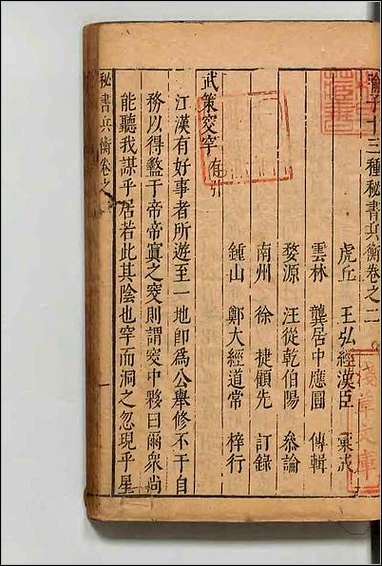 喻子十三種秘書兵衡卷之二
虎丘 王弘經漢臣
雲林 龔居中應圓 傳輯
婺源 汪從乾伯陽 叅論
南州 徐捷顧先 訂錄
鍾山 鄭大經道常 梓行
武策窔穽 有引
江漢有好事者所遊至一地卽為公舉修不干自
務以得鳌于帝帝寘之窔則謂窔中夥曰爾衆尚
能聽我謀乎居若此其陰也穽而洞之忽現乎星
秘書兵衡卷之 一
淺草文庫